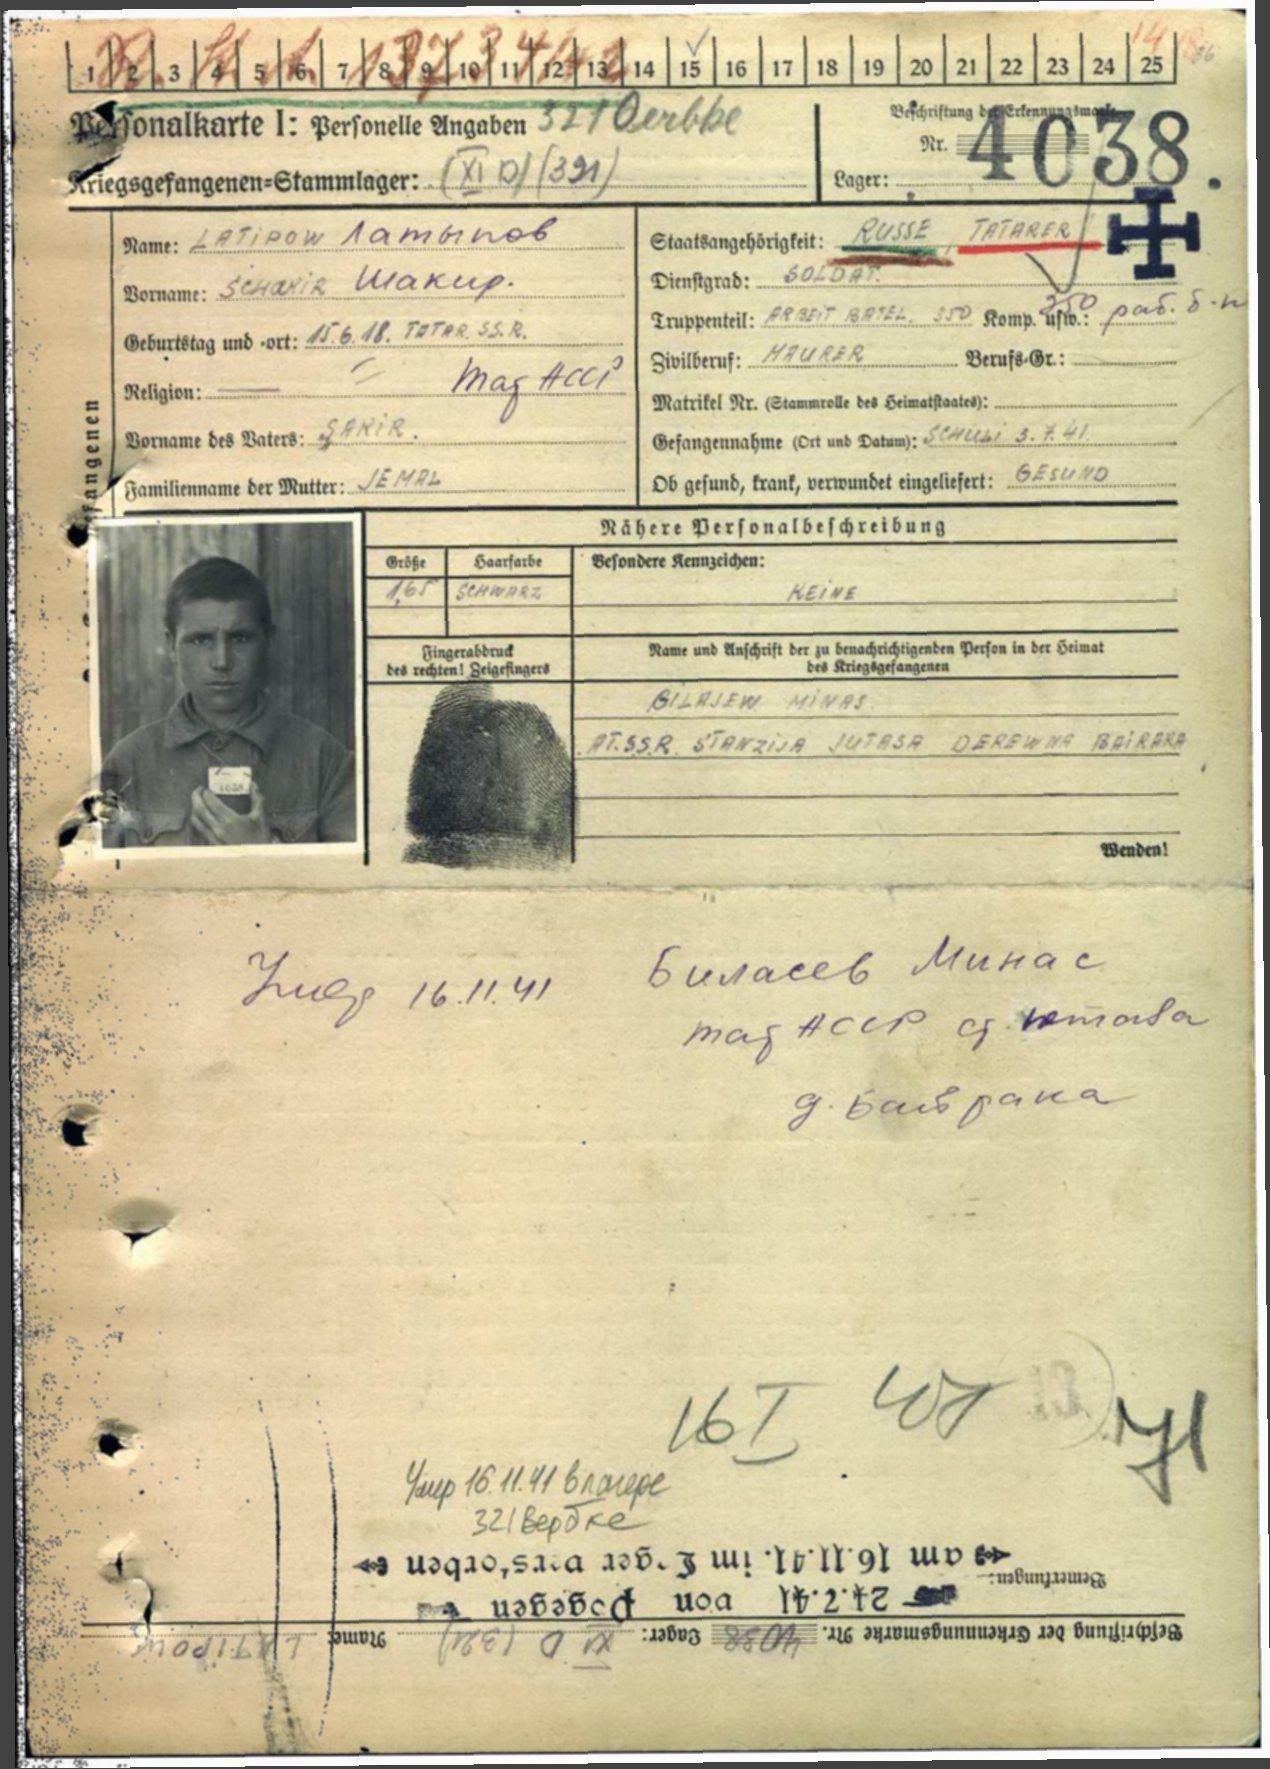 1 2 3 4 5 6 7 8 9 10 11 12 13 14 15 16 17 18 19 20 21 22 23 24 25
Personalkarte I: Personelle Angaben 321 Oerbke
Beschriftung der Erkennungsmarke
Nr. 4038.
Kriegsgefangenen=Stammlager: (XI D) (321)
Lager:
Name: LATIPOW Латыпов
Vorname: SCHAKIR Шакир.
Geburtstag und =ort: 15.6.18. TATAR. SS.R.
Religion: — Тат АССР
Vorname des Vaters: SAKIR.
Familienname der Mutter: JEMAL
Staatsangehörigkeit: RUSSE, TATARER
Dienstgrad: SOLDAT.
Truppenteil: ARBEIT BATEL. 350 Komp. usw.: 350 раб. б-н
Zivilberuf: MAURER Berufs=Gr.:
Matrikel Nr. (Stammrolle des Heimatstaates):
Gefangennahme (Ort und Datum): SCHULI 3.7.41.
Ob gesund, krank, verwundet eingeliefert: GESUND
Nähere Personalbeschreibung
Größe Haarfarbe Besondere Kennzeichen:
1,65 SCHWARZ KEINE
Fingerabdruck
des rechten! Zeigefingers
Name und Anschrift der zu benachrichtigenden Person in der Heimat
des Kriegsgefangenen
BILAJEW MINAS
AT.SS.R. STANZIJA JUTASA DEREWNA BAIRAKA
4038
Wenden!
Умер 16.11.41
Биласев Минас
Тат АССР ст Ютаза
д. Байрака
16 I
71
Умер 16.11.41 в лагере
321 Вербке
am 16.11.41. im Lager verstorben
Bemerkungen:
24.7.41 von Pogegen
Beschriftung der Erkennungsmarke Nr. 4038 Lager: XI D (321) Name: LATIPOW